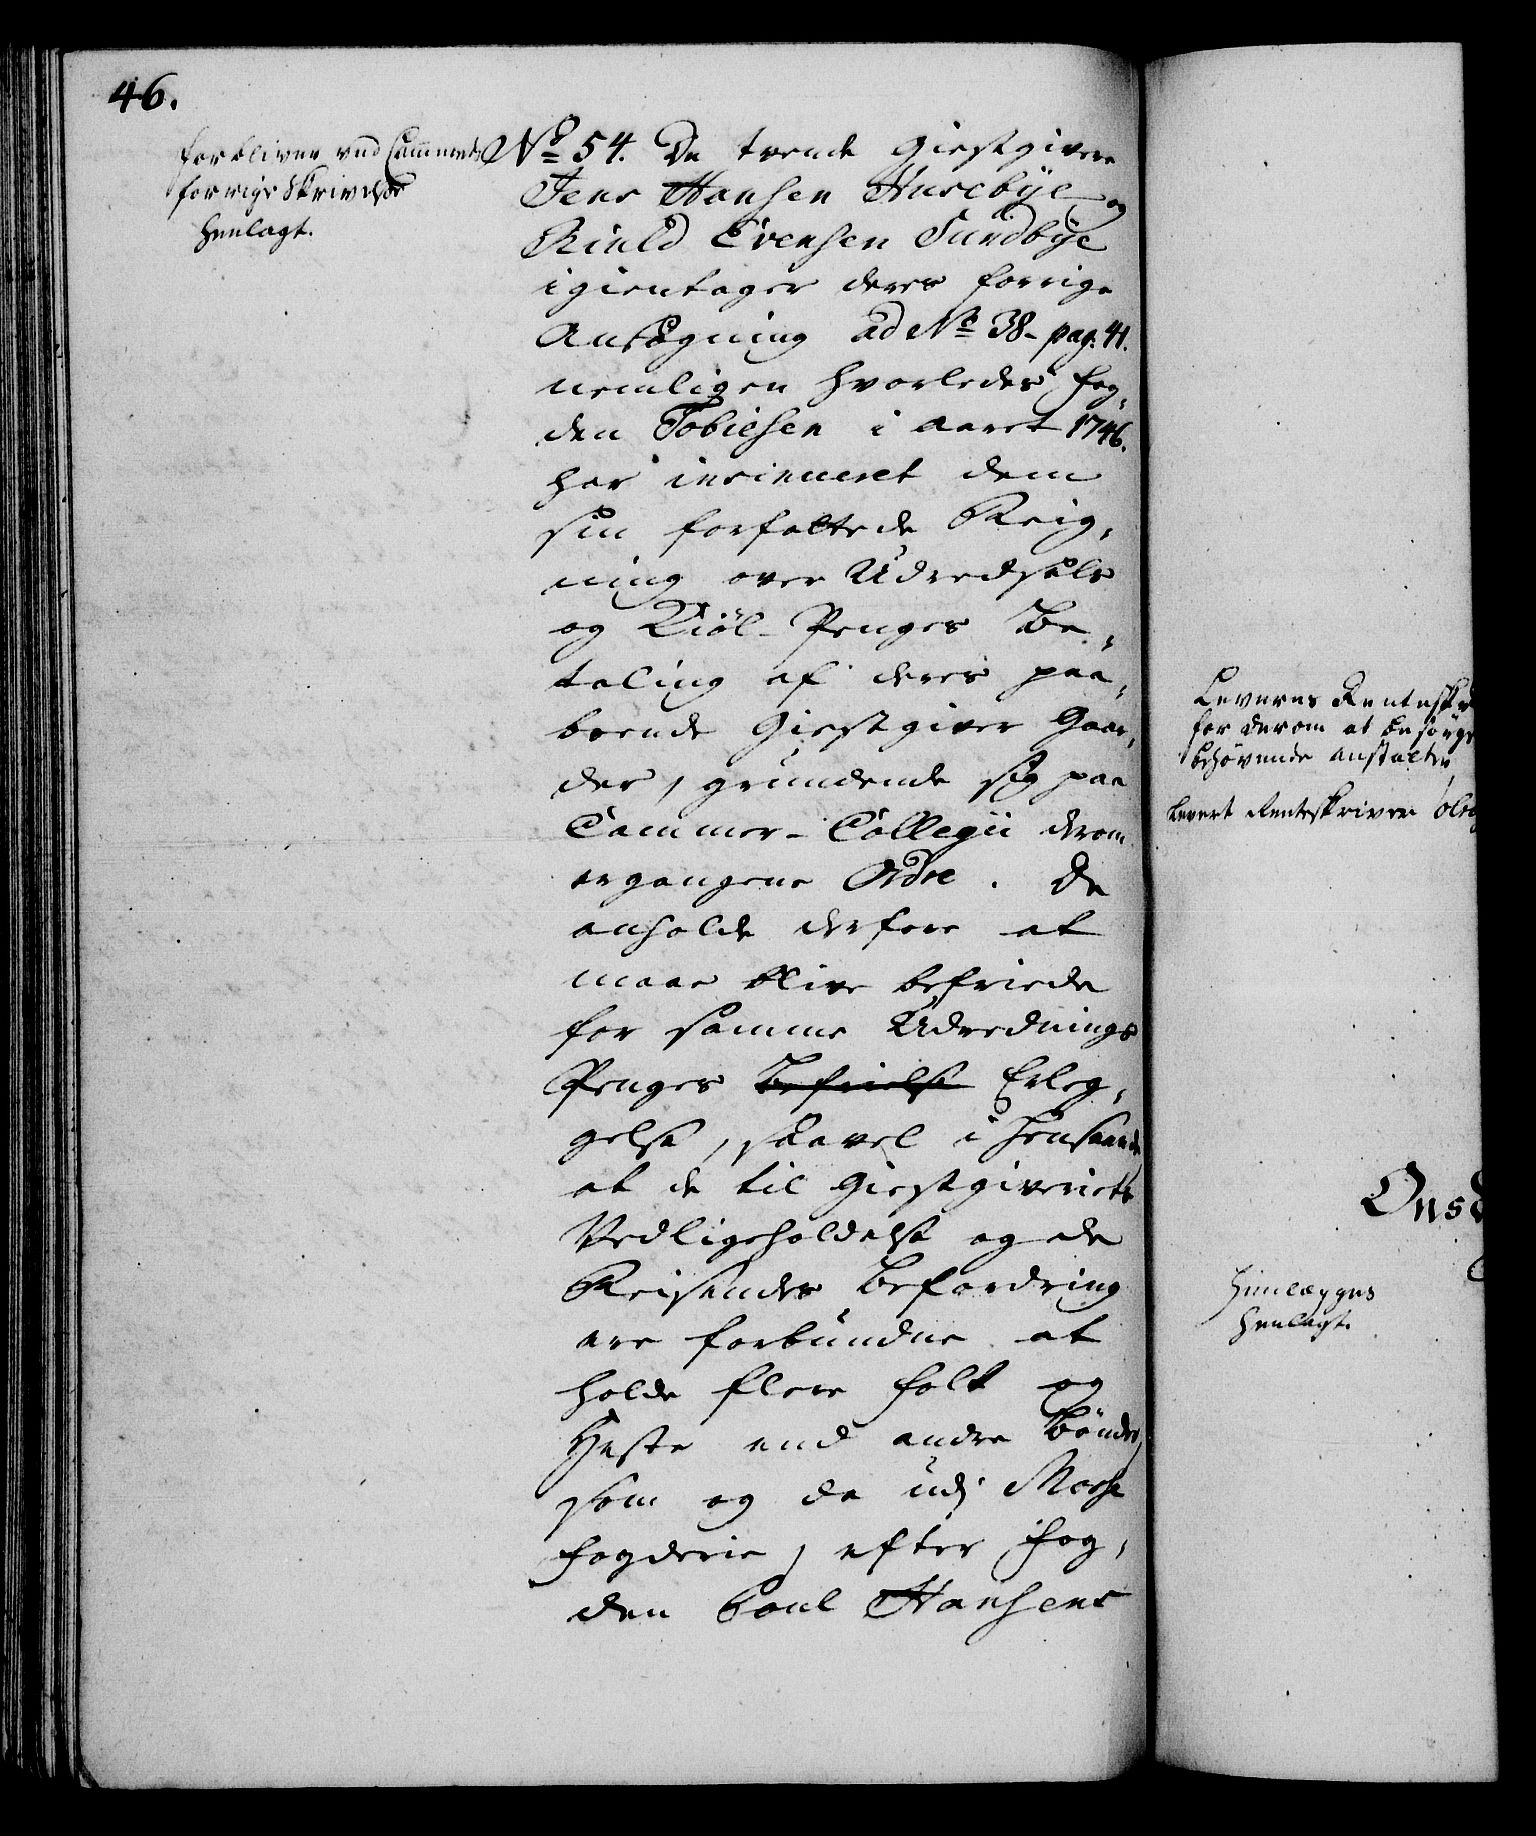 46.
forbliver ved Cammerets
forrige Skrivelse
Henlagt.
No 54. De tvende Giestgivere
Jens Hansen Husebÿe og
Evensen Sundbÿe
igientager deres forrige
Ansøgning ad No 38- pag: 41.
nemligen hvorledes Fog-
den Tobiesen i aaret 1746.
har insinueret dem
sin forfattede Reig-
ning over Udredsels
og Kiøl-Penges Be-
taling af deres paa-
boende Giestgiver Gaar-
der, grundende sig paa
Cammer-Collegii derom
ergangene Ordre. De
anholde derfore at
maae blive befriede
for samme Udrednings
Penges Befrielse Erleg-
gelse, saavel i Henseende
at de til Giestgiveriets
Vedligeholdelse og de
Reisendes Befordring
ere forbundne at
holde flere Folk og
Heste end andre Bønder,
som og de udj Mosse
Fogderie, efter Fog-
den Poul Hansens
Leveres Renteskr
for derom at besørge
behøvende Anstalter
Levert Renteskriver
Onsd
Henlægges
Henlagt.